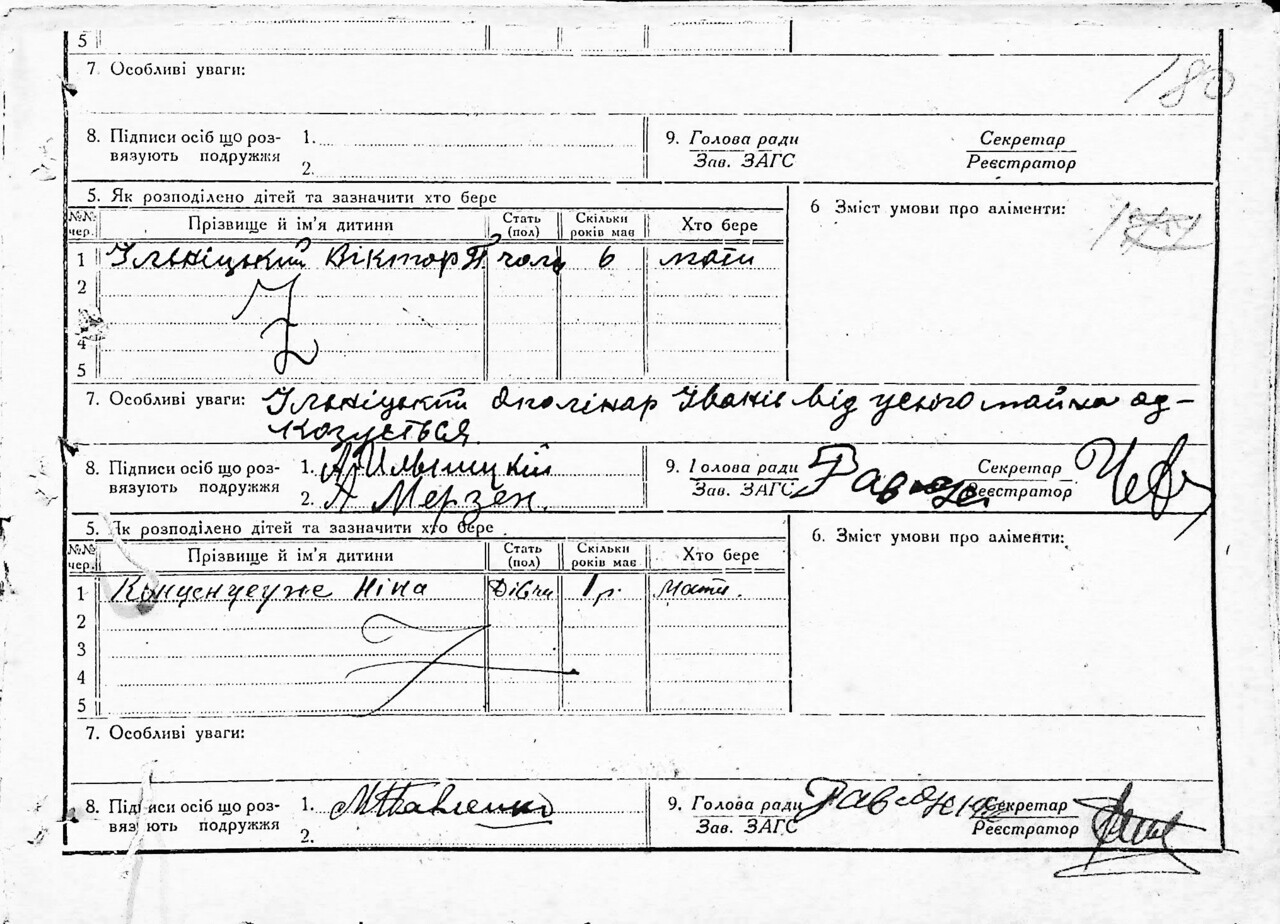 5
7. Особливі уваги:
180
8. Підписи осіб що роз-
вязують подружжя
1.
2.
9. Голова ради
Зав. ЗАГС
Секретар
Реєстратор
5. Як розподілено дітей та зазначити хто бере
№№ чер. Прізвище й ім'я дитини Стать (пол) Скільки років має Хто бере
6 Зміст умови про аліменти:
1 Ільніцький Віктор чол 6 мати
2
4
5
7. Особливі уваги: Ільніцький Аполінар Іванів від усього майна од-
казується
8. Підписи осіб що роз-
вязують подружжя
1. А Ильницкий
2. А Мерзен.
9. Голова ради
Зав. ЗАГС
Секретар
Реєстратор
5. Як розподілено дітей та зазначити хто бере
№№ чер. Прізвище й ім'я дитини Стать (пол) Скільки років має Хто бере
6. Зміст умови про аліменти:
1 Ніна Дівч 1 р. мати.
2
3
4
5
7. Особливі уваги:
8. Підписи осіб що роз-
вязують подружжя
1. М Павленко
2.
9. Голова ради
Зав. ЗАГС
Секретар
Реєстратор